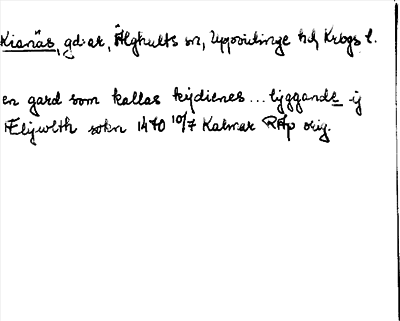 Kianäs, gdar, Älghults sn, Uppvidinge hd, Krbgs l.
en gard som kallas kydienes ... lyggande ij
Ælywlth sokn 1470 10/7 Kalmar RAp orig.